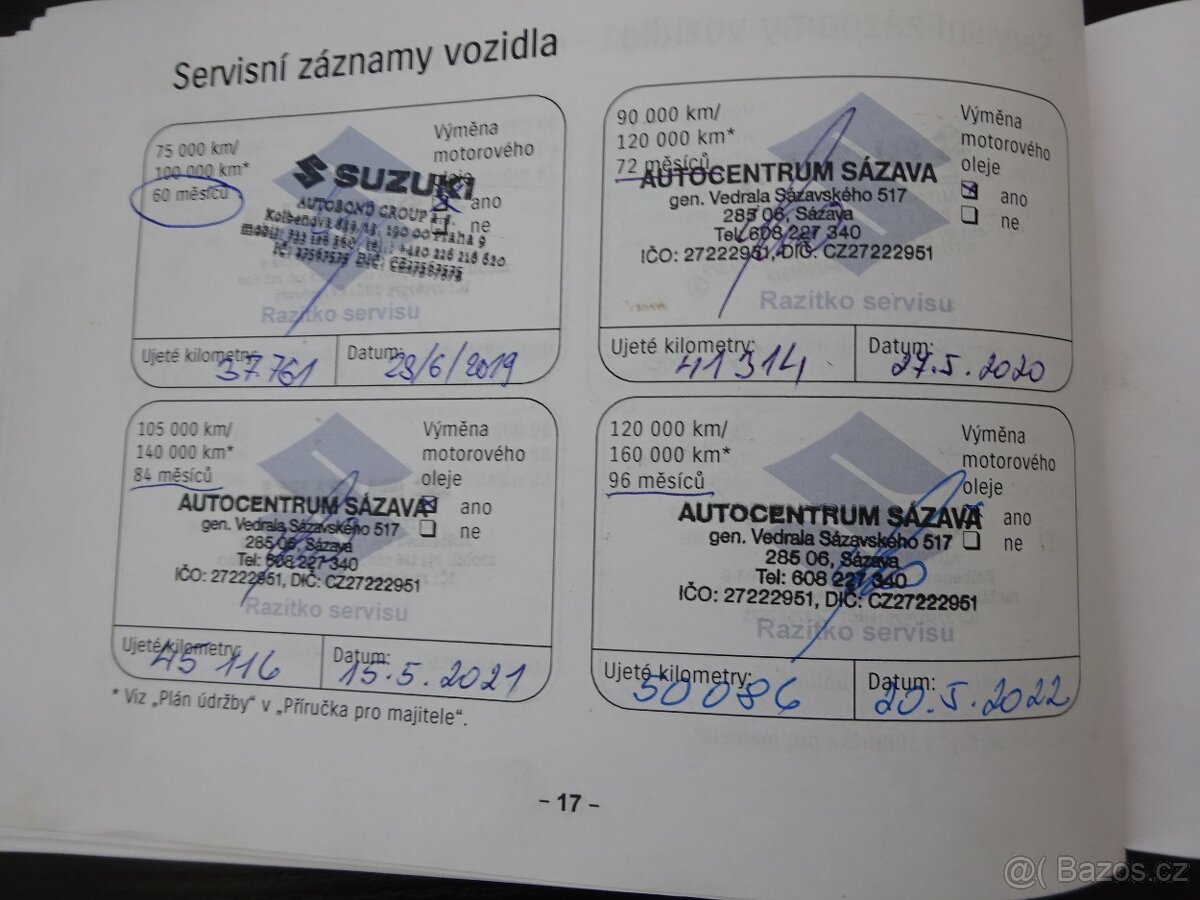 Servisní záznamy vozidla
75 000 km/
100 000 km*
60 měsíců
Výměna
motorového
oleje
ano
ne
SUZUKI
AUTOBOND GROUP a.s.
Kolbenova 859/13, 190 00 Praha 9
Razítko servisu
Ujeté kilometry:
37761
Datum:
23/6/2019
90 000 km/
120 000 km*
72 měsíců
Výměna
motorového
oleje
ano
ne
AUTOCENTRUM SÁZAVA
gen. Vedrala Sázavského 517
285 06, Sázava
Tel: 608 227 340
IČO: 27222951, DIČ: CZ27222951
Razítko servisu
Ujeté kilometry:
41314
Datum:
27.5.2020
105 000 km/
140 000 km*
84 měsíců
Výměna
motorového
oleje
ano
ne
AUTOCENTRUM SÁZAVA
gen. Vedrala Sázavského 517
285 06, Sázava
Tel: 608 227 340
IČO: 27222951, DIČ: CZ27222951
Razítko servisu
Ujeté kilometry:
45116
Datum:
15.5.2021
120 000 km/
160 000 km*
96 měsíců
Výměna
motorového
oleje
ano
ne
AUTOCENTRUM SÁZAVA
gen. Vedrala Sázavského 517
285 06, Sázava
Tel: 608 227 340
IČO: 27222951, DIČ: CZ27222951
Razítko servisu
Ujeté kilometry:
50086
Datum:
20.5.2022
* Viz „Plán údržby“ v „Příručka pro majitele“.
- 17 -
@( Bazos.cz